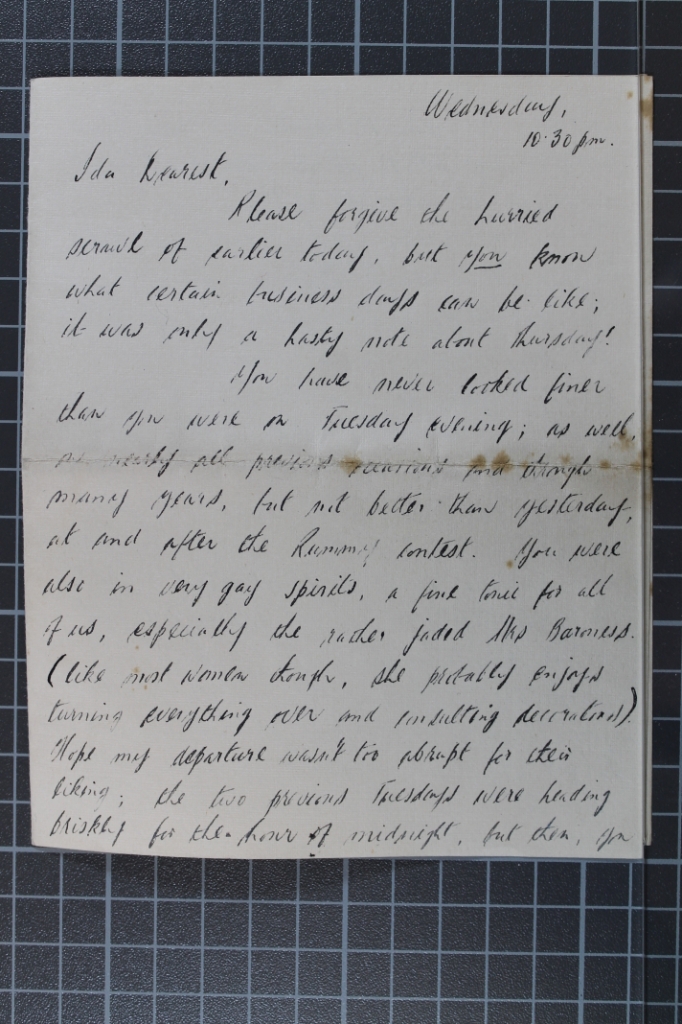 Wednesday,
10.30 pm.
Ida Dearest,
Please forgive the hurried
scrawl of earlier today, but you know
what certain business days can be like;
it was only a hasty note about Thursday!
You have never looked finer
than you were on Tuesday evening; as well,
on nearly all previous occasions and through
many years, but not better than yesterday,
at and after the Rummy contest. You were
also in very gay spirits, a fine tonic for all
of us, especially the rather jaded Mrs Baroness.
(like most women though, she probably enjoys
turning everything over and consulting decorators).
Hope my departure wasn't too abrupt for their
liking; the two previous Tuesdays were heading
briskly for the hour of midnight, but then, you